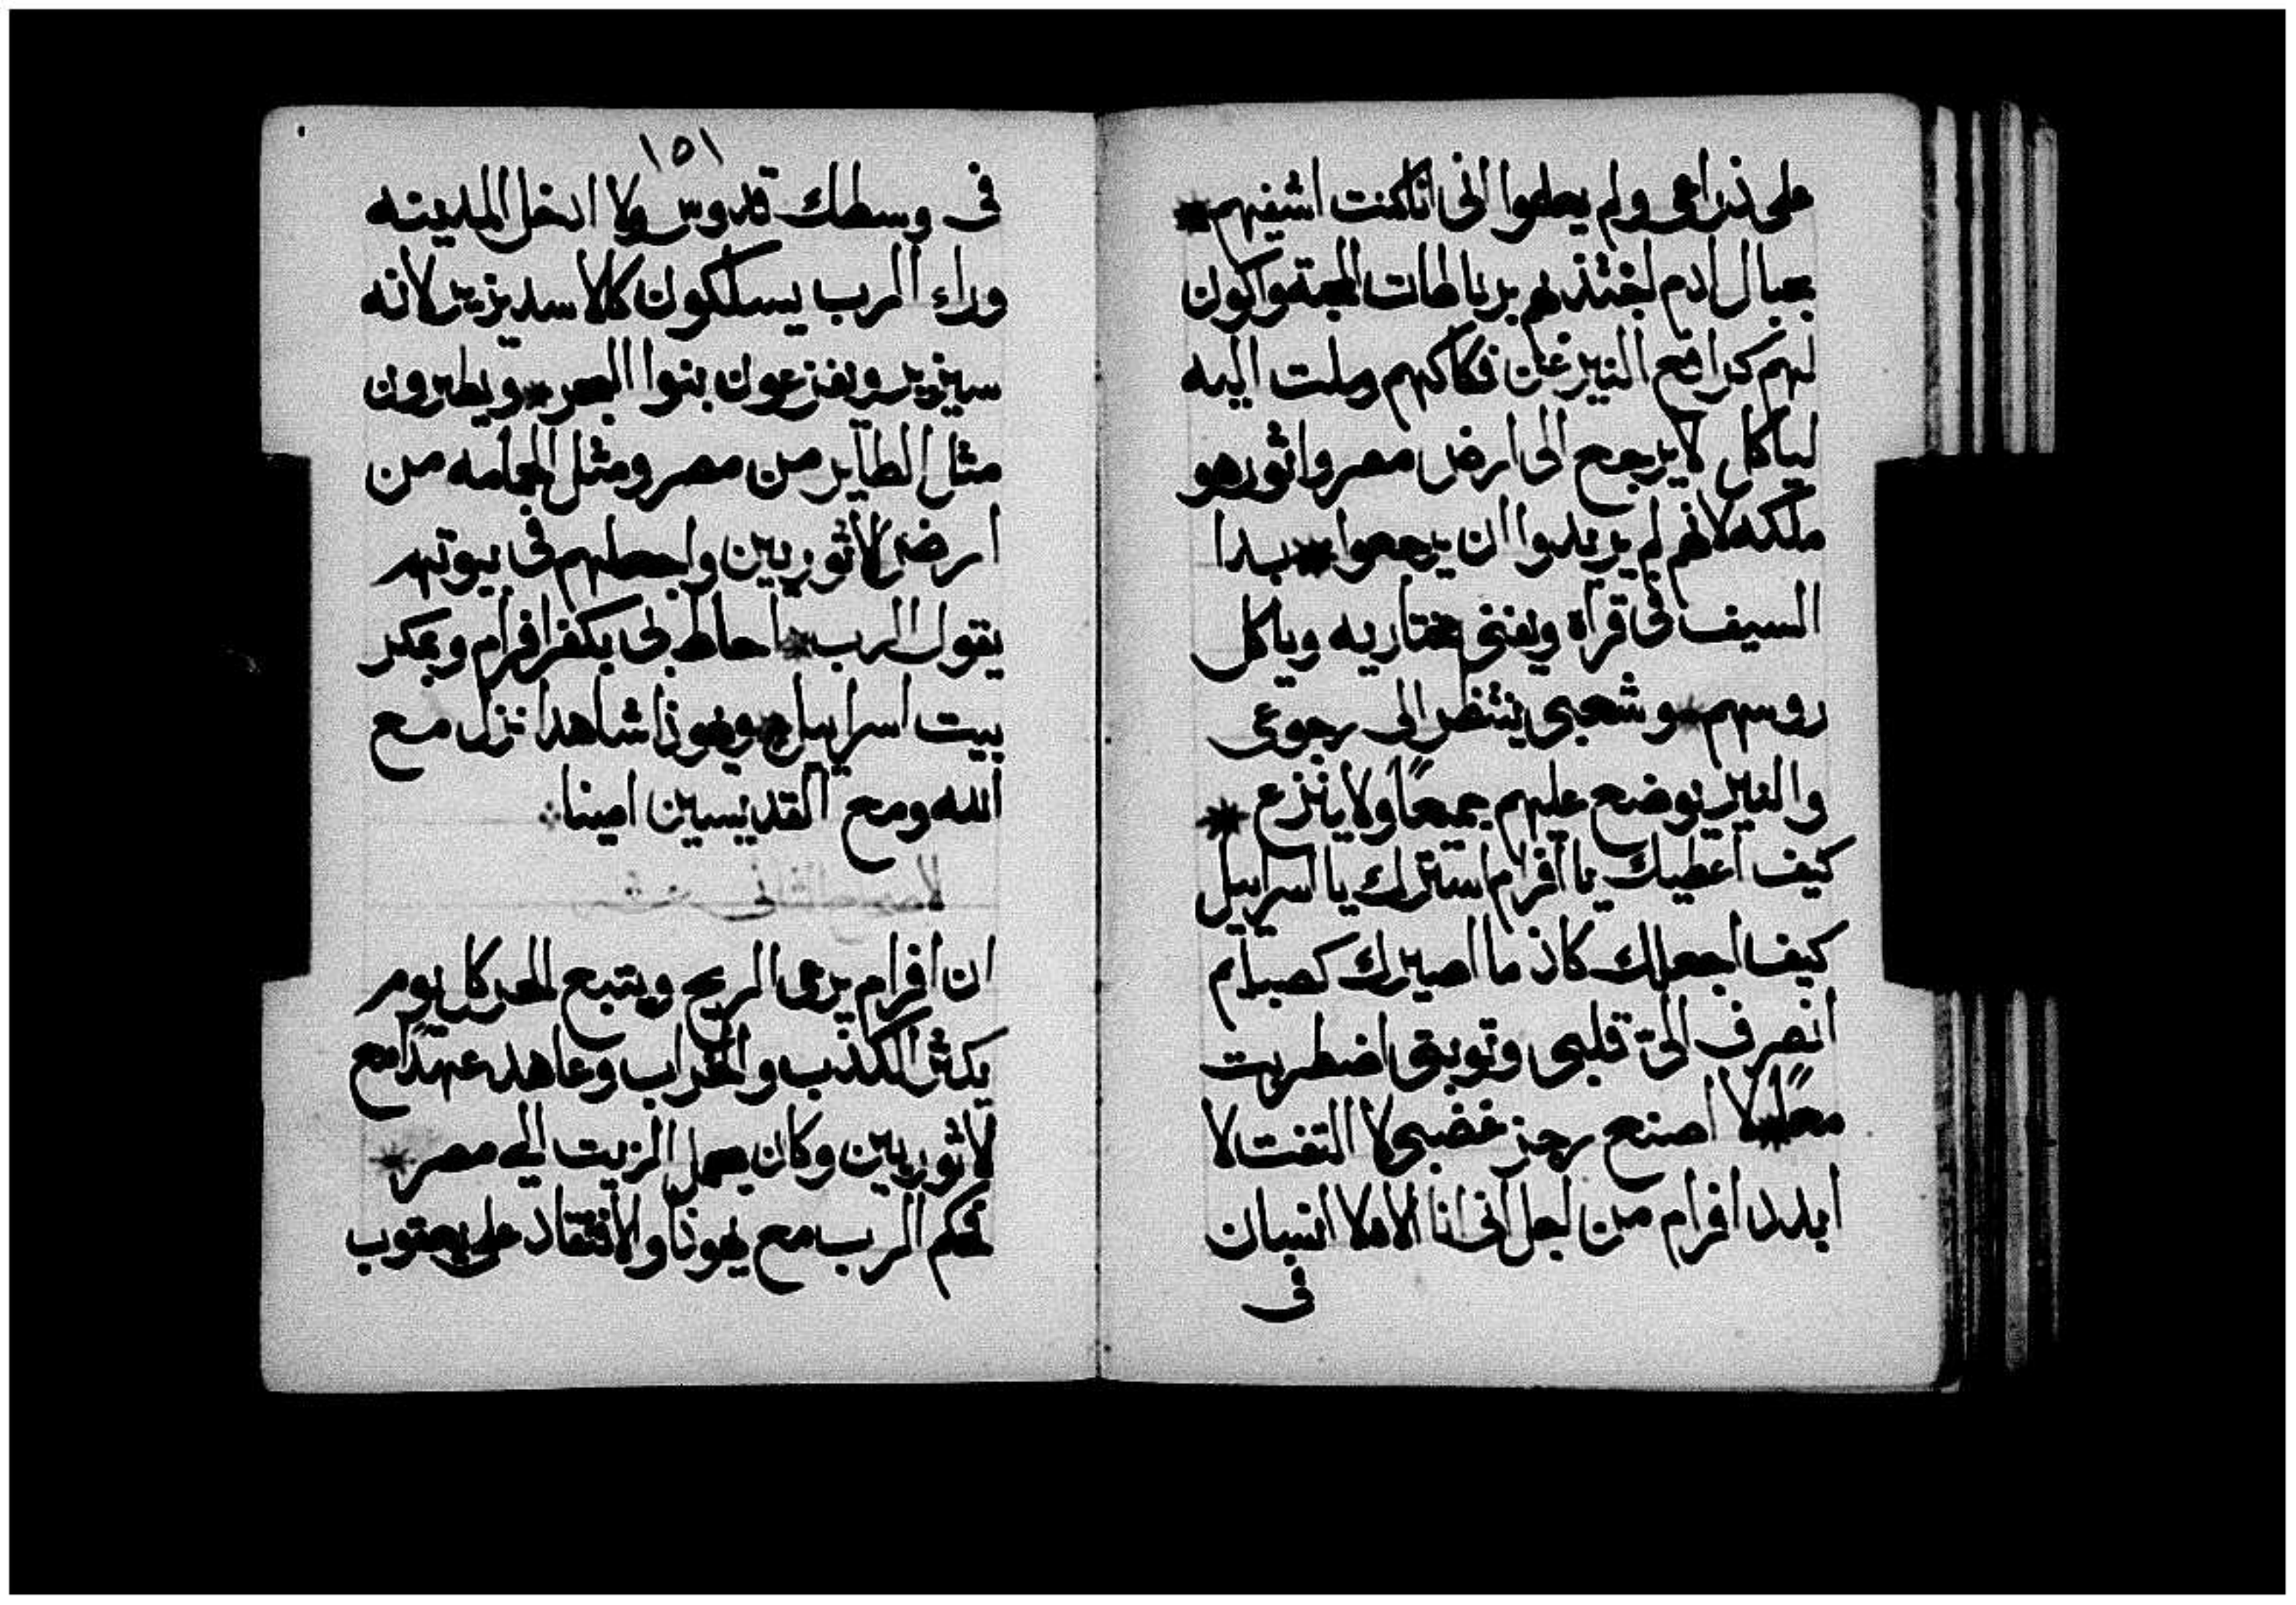 على ذراعى ولم يعلموا انى انا كنت اشفيهم
بحبال ادم اجتذبهم برباطات المحبة واكون
لهم كرافع النير عن فكاكهم وملت اليه
لياكل لا يرجع الى ارض مصر واثور هو
ملكه لانهم لم يريدوا ان يرجعوا بدا
السيف فى قراه ويفنى مختاريه وياكل
روسهم وشعبى ينتضر الى رجوعى
والنير يوضع عليهم جميعًا ولا ينزع
كيف اعطيك يا افرام استرك يا اسراييل
كيف اجعلك كاذ ما اصيرك كصبايم
انصرف الىّ قلبى وتوبتى اضطربت
معًا لا اصنع رجز غضبى لا التفت لا
ابدد افرام من اجل انى انا الاه لا انسان
فى
١٥١
فى وسطك قدوس ولا ادخل المدينه
وراء الرب يسلكون كالاسد يزير لانه
سيزير ويفزعون بنوا البحر ويطيرون
مثل الطاير من مصر ومثل الحمامه من
ارض الاثوريين واجعلهم فى بيوتهم
يقول الرب احاط بى بكفر افرام وبمكر
بيت اسراييل ويهوذا شاهدا نزل مع
الله ومع القديسين امينا
الاصحاح الثانى عشر
ان افرام يرعى الريح ويتبع الحر كل يوم
يكثر الكذب والخراب وعاهد عهدًا مع
الاثوريين وكان يحمل الزيت الى مصر
لحكم الرب مع يهوذا والافتقاد على يعقوب